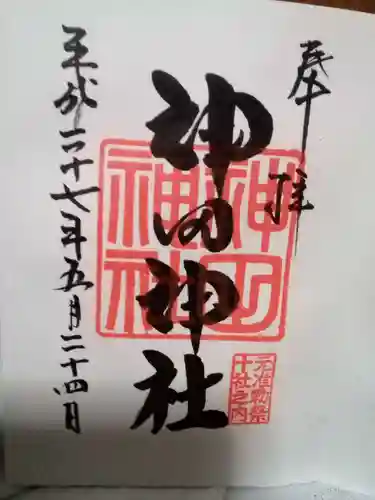 奉拝
神田神社
神田神社
元准勅祭
十社之内
平成二十七年五月二十四日